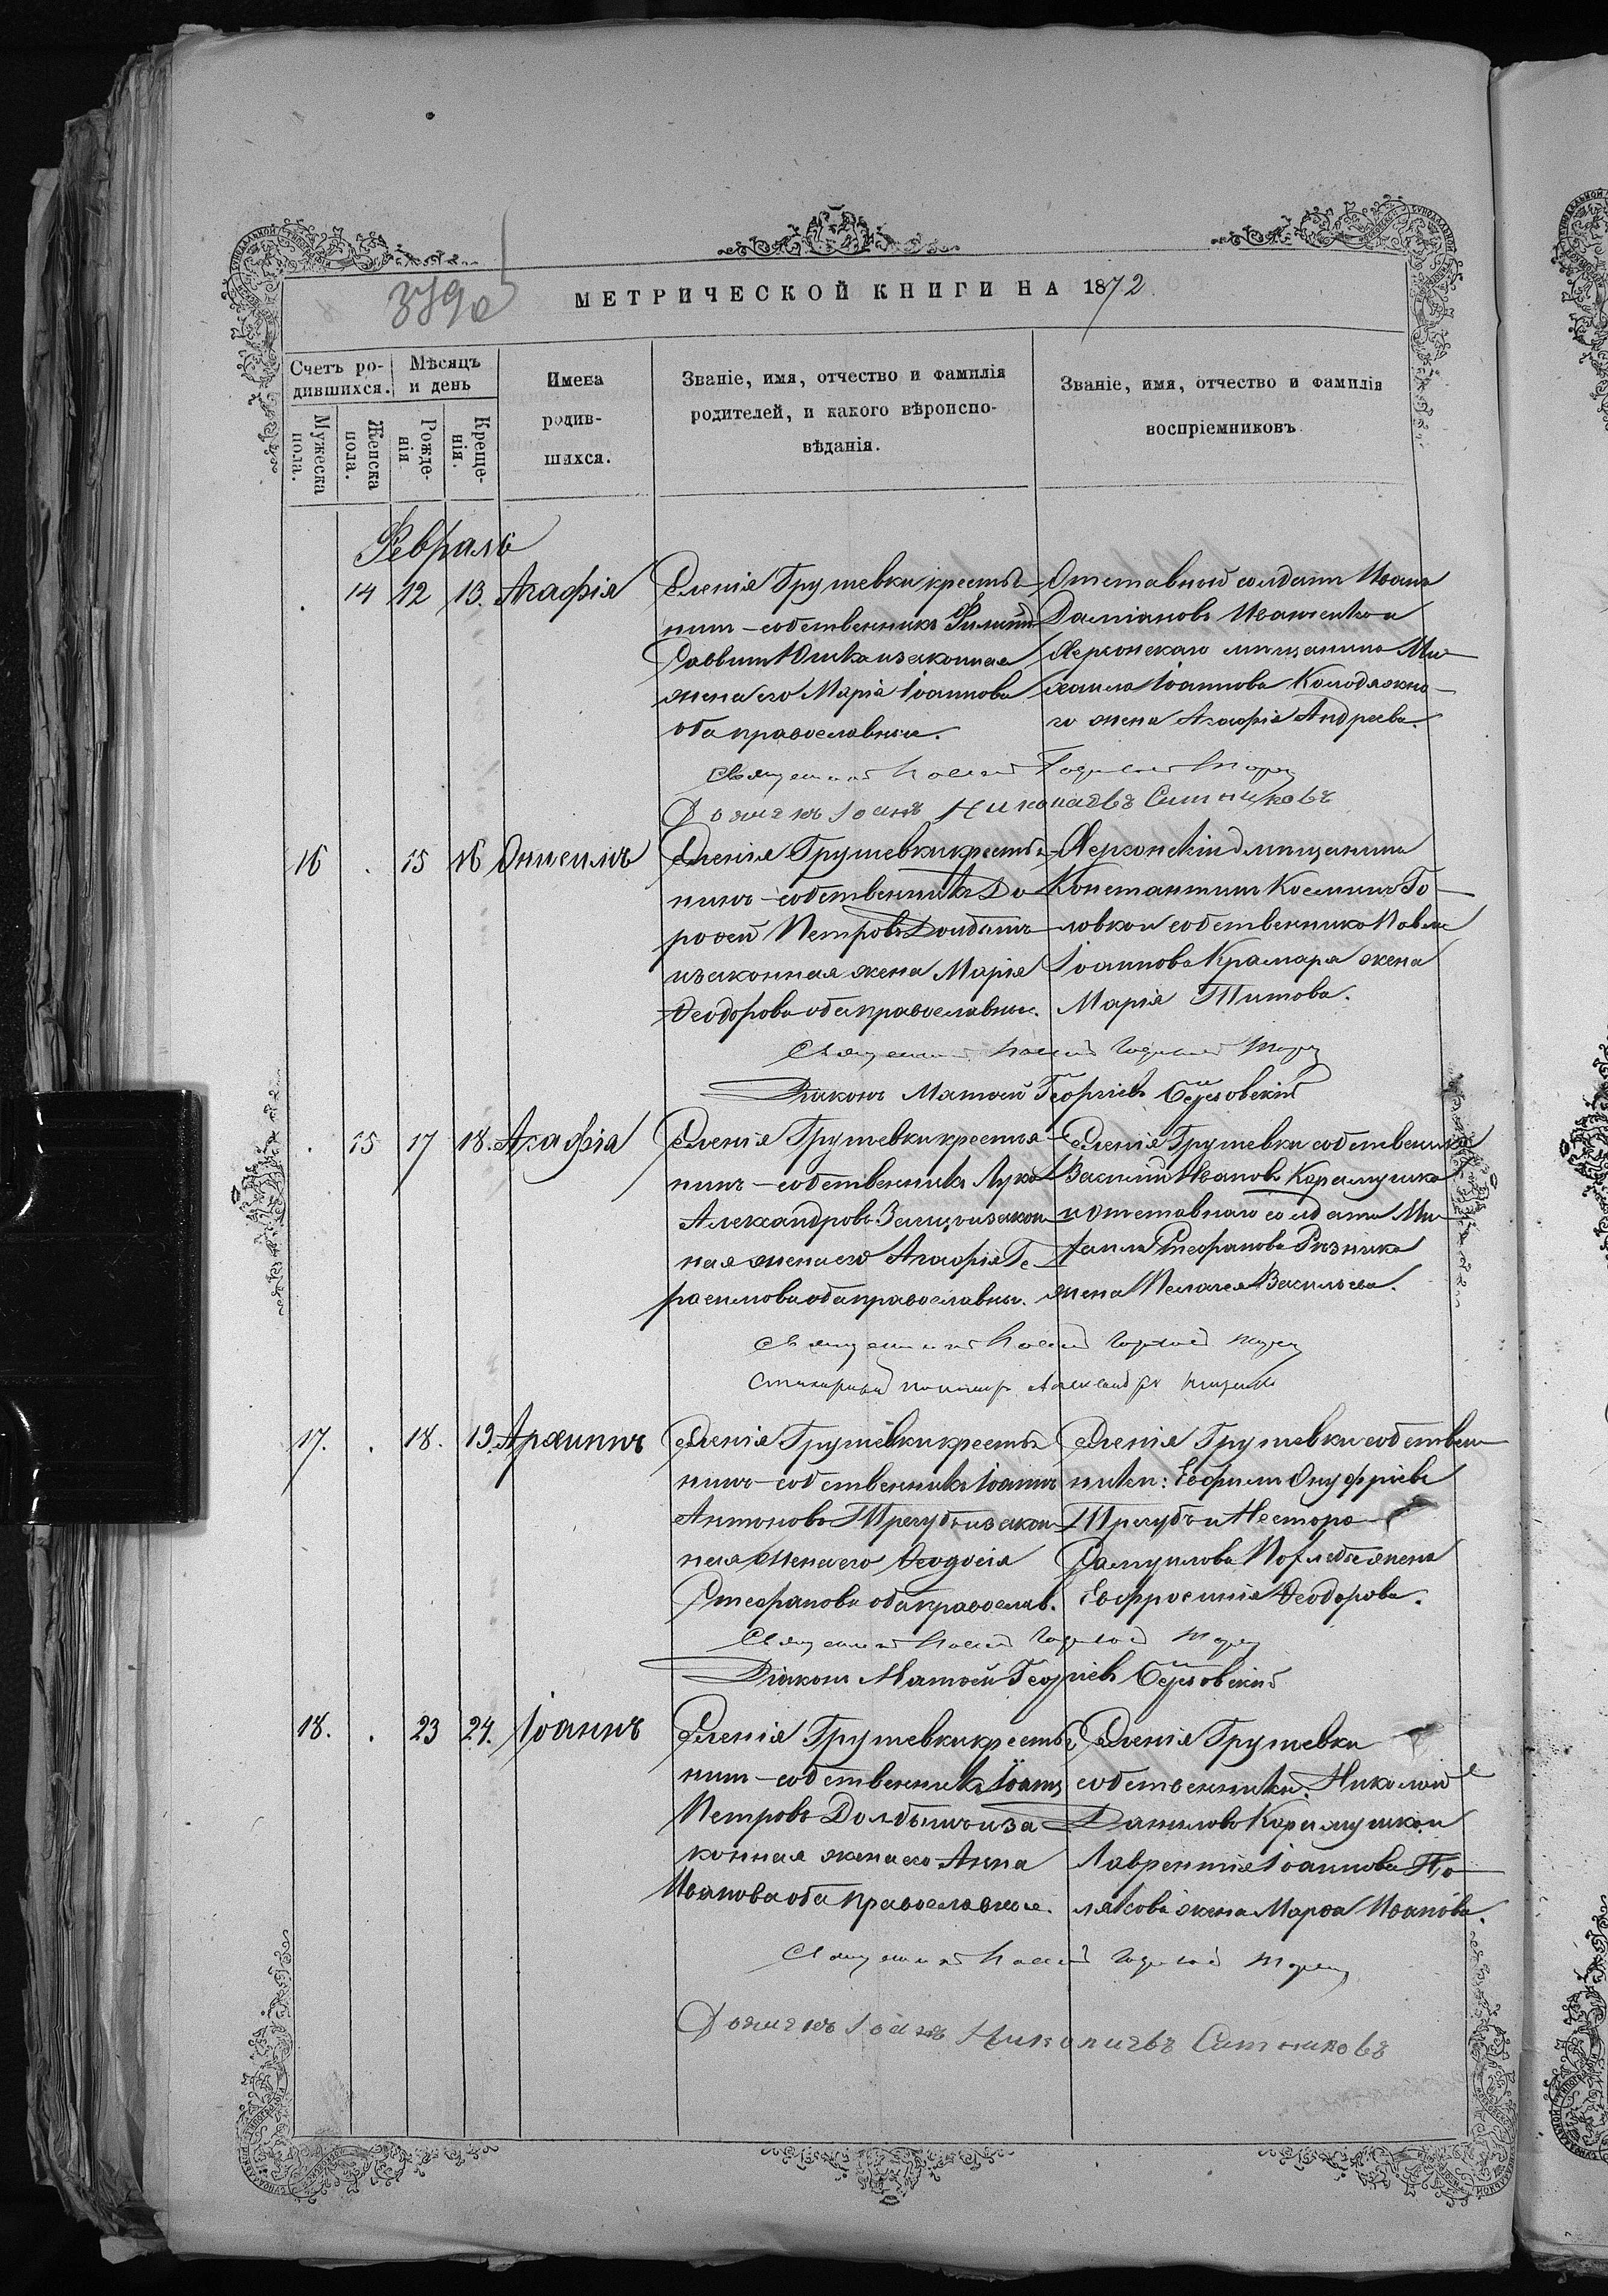 379 об
МЕТРИЧЕСКОЙ КНИГИ НА 1872
Счетъ ро-
дившихся.
Мѣсяцъ
и день
Имена
родив-
шихся.
Званіе, имя, отчество и фамилія
родителей, и какого вѣроиспо-
вѣданія.
Званіе, имя, отчество и фамилія
воспріемниковъ
Мужеска
пола.
Женска
пола.
Рожде-
нія
Креще-
нія.
Февраль
14 12 13. Агафія
Селенія Грушевки крестья-
нинъ-собственникъ Филиппъ
Саввинъ Юшка и законная
жена его Марія Іоаннова
оба православные.
Отставной солдатъ Иванъ
Даміановъ Иваненко и
Херсонскаго мещанина Ми-
хаила Іоаннова Колодяжна-
го жена Агафія Андреева.
Священникъ
Іоанъ Николаевъ Ситниковъ
16 . 15 16 Онисимъ
Селенія Грушевки крестья-
нинъ-собственникъ До-
рофей Петровъ Долбышъ
и законная жена Марія
Ѳеодорова оба православные.
Херсонскій мещанинъ
Константинъ Косминъ Го-
ловко и собственника Павла
Іоаннова Крамаря жена
Марія Титова.
Священникъ
Діаконъ Матѳей Георгіевъ
. 15 17 18. Агафіа
Селенія Грушевки крестья-
нинъ-собственникъ Лука
Александровъ и закон-
ная жена его Агафія Ге-
расимова оба православны.
Селенія Грушевки собственникъ
Василій Ивановъ Карамушка
и отставного солдата Ми-
хаила Стефанова Рѣзника
жена Пелагея Васильева.
Священникъ
Александръ
17. . 18. 19. Архипъ
Селенія Грушевки крестья
нинъ-собственникъ Іоаннъ
Антоновъ Трегубъ и закон
ная жена его Ѳеодосія
Стефанова оба правосслав.
Селенія Грушевки собствен-
ники: Евфимъ Онуфріевъ
Трегубъ и Нестора
Самуилова жена
Евфросинія Ѳеодорова.
Священникъ
Діаконъ Матѳей Георгіевъ
18. . 23 24. Іоаннъ
Селенія Грушевки крестья
нинъ-собственникъ Іоаннъ
Петровъ Долбышъ и за
конная жена его Анна
Иванова оба православные.
Селенія Грушевки
собственники: Николай
Даниловъ Карамушка и
Лаврентія Іоаннова По-
лякова жена Марѳа Иванова.
Священникъ
Іоанъ Николаевъ Ситниковъ